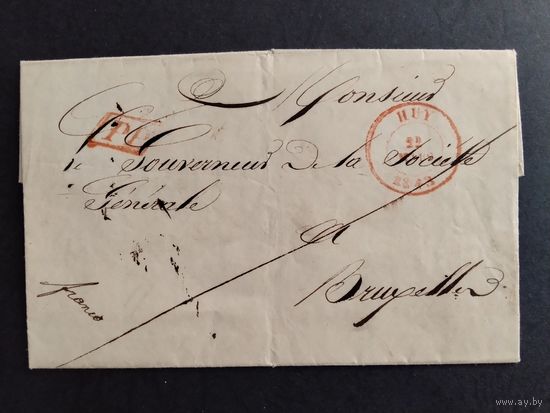 Monsieur
HUY
22
1843
PP
le Gouverneur De la Société
Générale
a
Bruxelles
franco
www.ay.by